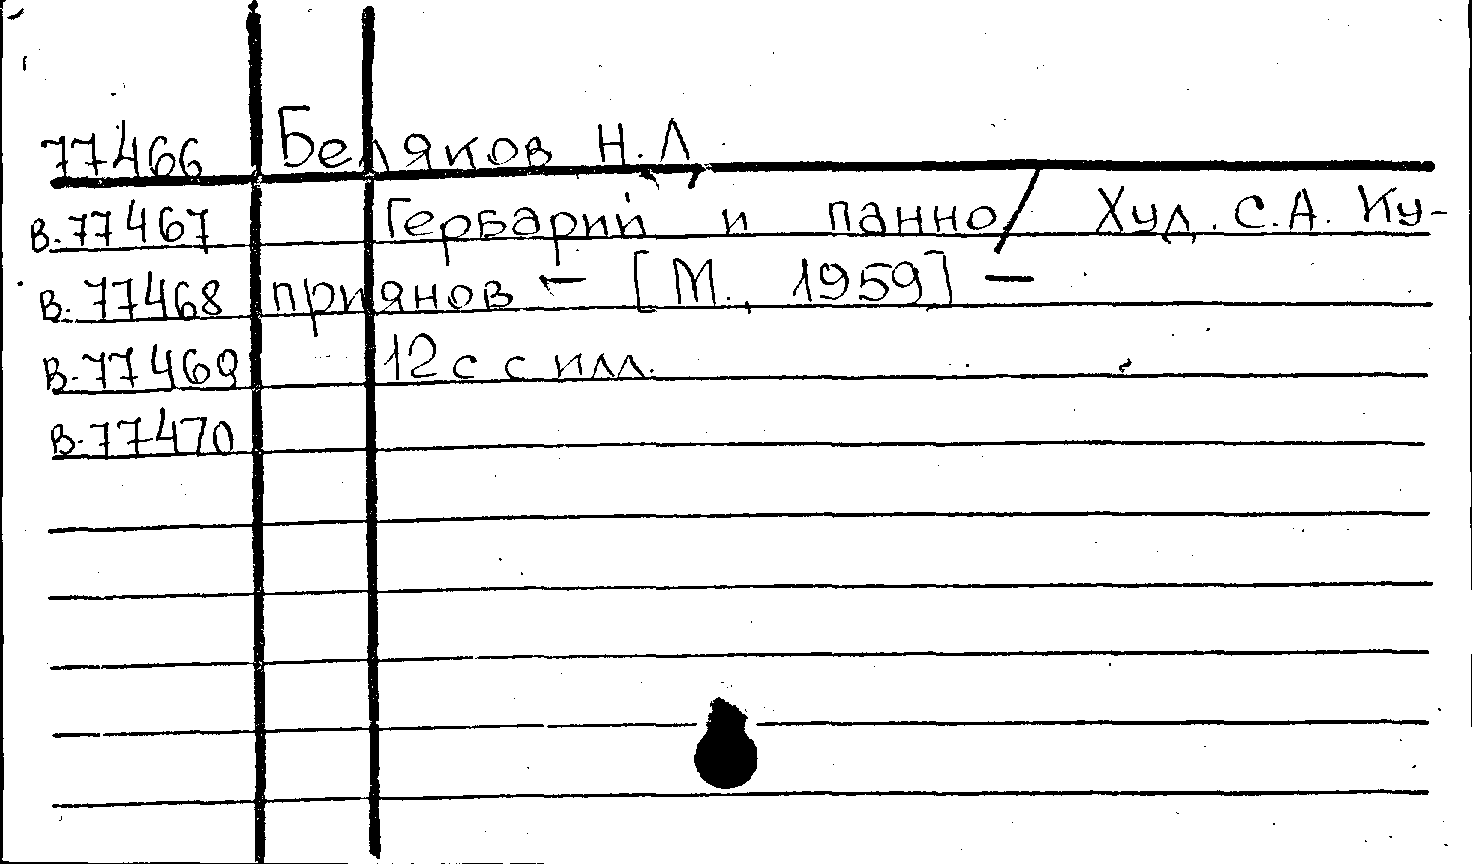 77466 Беляков Н.Л,
в.77467 Гербарий и панно/ Худ. С.А. Ку-
в.77468 приянов - [М., 1959] -
в.77469 12 с с илл.
в.77470